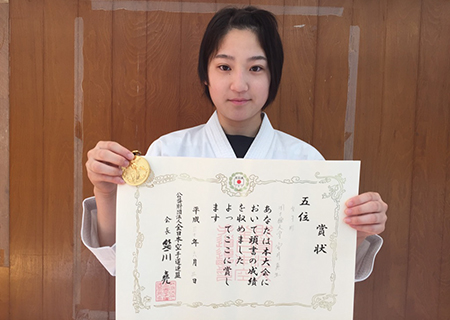 賞状
五位
あなたは本大会に
おいて頭書の成績
を収めました
よってここに賞し
ます
平成 年 月 日
公益財団法人全日本空手道連盟
会長 笹川 堯